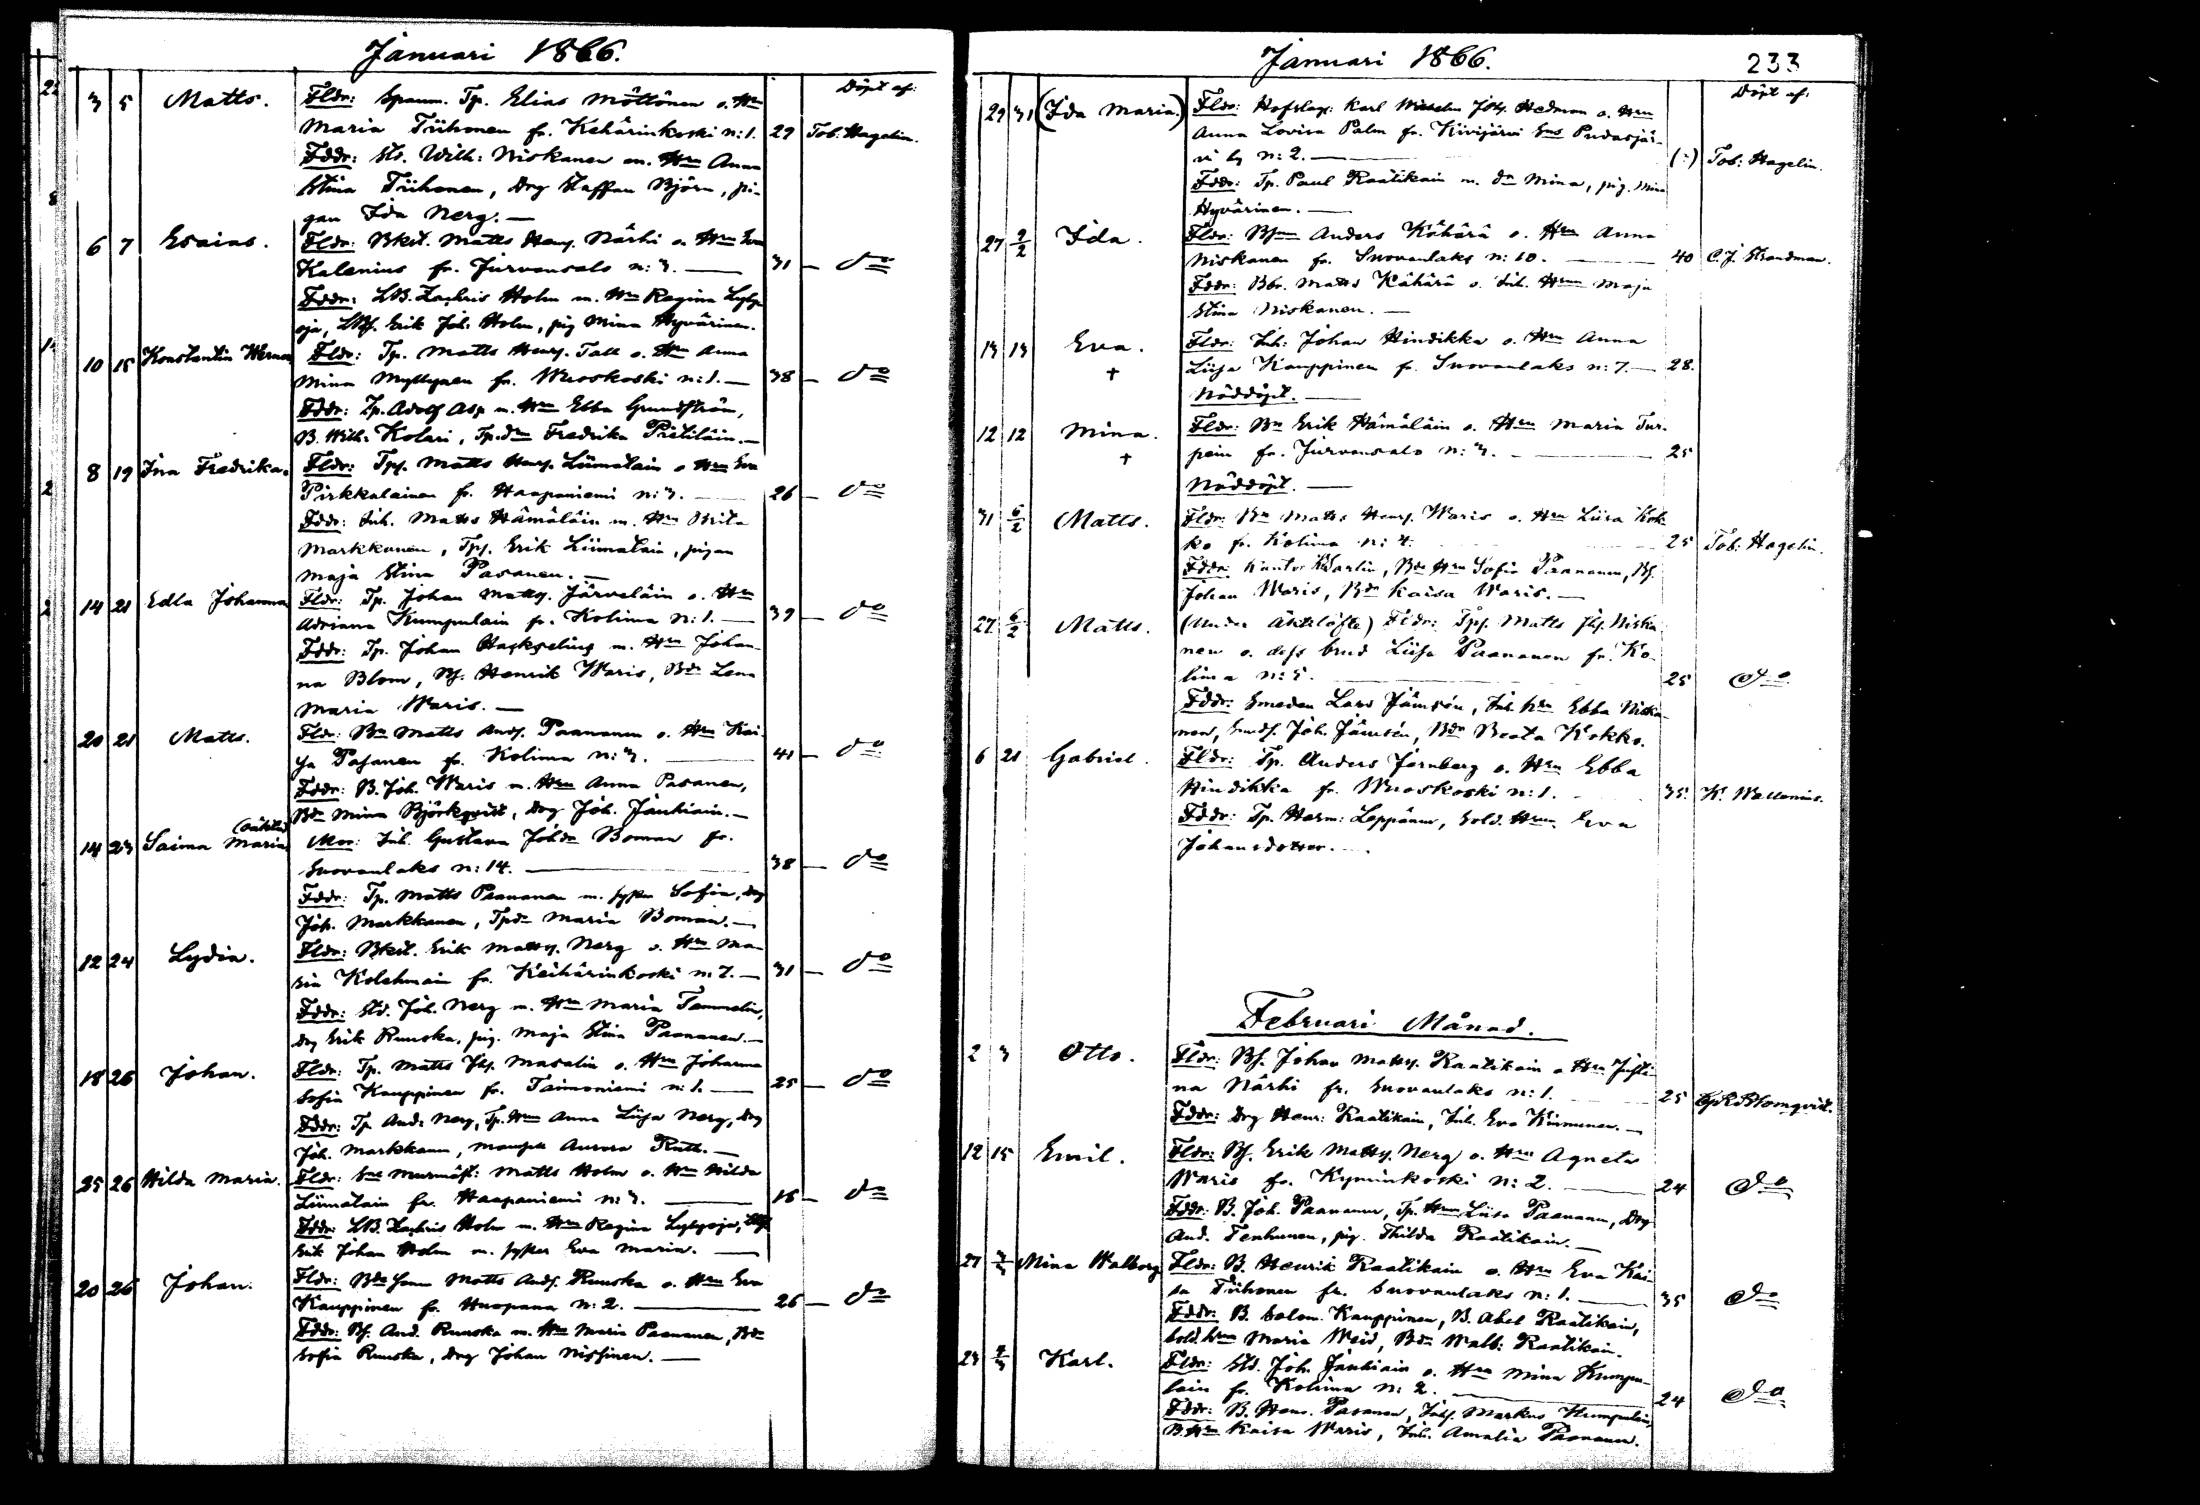 Januari 1866.
Döpt af:
3 5 Matts. Fldr: Spaun. Tp. Elias Möttönen o. Hru
Maria Tiihonen fr. Kehärinkoski n:1. 29 Tob. Hagelin.
Fddr: Std. Wilh: Niskanen m. Hru Anna
Stina Tiihonen, Drg Staffan Björn, pi-
gan Ida Nerg. —
6 7 Esaias. Fldr: Bkst. Matts Henr. Närhi o. Hru Eva
Kalenius fr. Jurvansalo n:3. — 31 — do
Fddr: LB. Zachris Holm m. Hru Regina Lyly-
oja, LBs. Erik Joh. Holm, pig Mina Hyvärinen.
10 15 Konstantin Werner Fldr: Tp. Matts Henrs. Tall o. Hru Anna
Mina Myllynen fr. Wuoskoski n:1. — 38 — do
Fddr: Tp. Adolf Asp m. Hru Ebba Grundström,
B. Wilh: Kolari, Tp.dr Fredrika Pitiläin. —
8 19 Ina Fredrika. Fldr: Tps. Matts Henrs. Liimatain o Hru Eva
Pirkkalainen fr. Haapaniemi n:3. — 26 — do
Fddr: Inh. Matts Hämäläin m. Hru Brita
Markkanen, Tps. Erik Liimatain, pigan
Maja Stina Pasanen. —
14 21 Edla Johanna Fldr: Tp. Johan Matts. Järveläin o. Hru
Adriana Kumpulain fr. Kolima n:1. — 39 — do
Fddr: Tp. Johan m. Hru Johan-
na Blom, Bs. Henrik Waris, Bdr Lena
Maria Waris. —
20 21 Matts. Fldr: Bn Matts Ands. Paananen o. Hru Kai-
sa Pasanen fr. Kolima n:3. — 41 — do
Fddr: B. Joh. Waris m. Hru Anna Pasanen,
Bdr Mina Björkqvist, Drg Joh. Jauhiain. —
(oäkta)
14 23 Saima Maria Mor: Inh. Gustava Johdr Boman fr.
Suovanlaks n:14. — 38 — do
Fddr: Tp. Matts Paananen m. syster Sofia, Drg
Joh. Markkanen, Tpdr Maria Boman. —
12 24 Lydia. Fldr: Bkst. Erik Matts. Nerg o. Hru Ma-
ria Kolehmain fr. Keihärinkoski n:7. — 31 — do
Fddr: Std. Joh. Nerg m. Hru Maria Tammelin,
Drg Erik Ruuska, pig. Maja Stina Paananen. —
18 26 Johan. Fldr: Tp. Matts Joh. Masalin o. Hru Johanna
Sofia Kauppinen fr. Taimoniemi n:1. — 25 — do
Fddr: Tp And: Nerg, Tp. Hru Anna Liisa Nerg, Drg
Joh. Markkanen, Aurora Roth. —
25 26 Hilda Maria. Fldr: Murmäst: Matts Holm o. Hru Hilda
Liimatain fr. Haapaniemi n:3. — 16 — do
Fddr: LB. Zachris Holm m. Hru Regina Lylyoja, LBs.
Erik Johan Holm m. syster Eva Maria. —
20 26 Johan. Fldr: Matts Ands. Ruuska o. Hru Eva
Kauppinen fr. Huopana n:2. — 26 — do
Fddr: Bs. And. Ruuska m. Hru Maria Paananen, Bdr
Sofia Ruuska, Drg Johan Nissinen. —
Januari 1866. 233
Döpt af:
29 31 (Ida Maria.) Fldr: Hofslag: Karl Wilhelm Johs. Hedman o. Hru
Anna Lovisa Palm fr. Kivijärvi Pudasjär-
vi by n:2. — (:) Tob: Hagelin.
Fddr: Tp. Paul Raatikain m. dr Mina, pig. Mina
Hyvärinen. —
27 2/2 Ida. Fldr: Anders Kähärä o. Hru Anna
Niskanen fr. Suovanlaks n:10. — 40 C. J. Strandman.
Fddr: Bbr. Matts Kähärä o. Inh. Hru Maja
Stina Niskanen. —
13 13 Eva. Fldr: Inh: Johan Hindikka o. Hru Anna
† Liisa Kauppinen fr. Suovanlaks n:7. — 28.
Nöddöpt. —
12 12 Mina. Fldr: Bn Erik Hämäläin o. Hru Maria Tur-
† pein fr. Jurvansalo n:3. — 25
Nöddöpt. —
31 6/2 Matts. Fldr: Bn Matts Henrs. Waris o. Hru Liisa Kok-
ko fr. Kolima n:4. 25 Tob: Hagelin.
Fddr: Kantor Sarlin, Bde Hru Sofia Paananen, Bs.
Johan Waris, Bdr Kaisa Waris. —
27 6/2 Matts. (Under äktelöfte) Fldr: Tps. Matts Johs. Niska-
nen o. dess brud Liisa Paananen fr. Ko-
lima n:5. 25 do
Fddr: Smeden Lars Jämsén, Inh. hru Ebba Niska-
nen, Smds. Joh. Jämsén, Bdr Beata Kokko.
6 21 Gabriel. Fldr: Tp. Anders Jernberg o. Hru Ebba
Hindikka fr. Wuoskoski n:1. 35. K. Wallenius.
Fddr: Tp. Herm: Leppänen, Sold. Hru Eva
Johansdotter. —
Februari Månad.
2 3 Otto. Fldr: Bs. Johan Matts. Raatikain o Hru Justi-
na Närhi fr. Suovanlaks n:1. 25 Blomqvist.
Fddr: Drg Henr: Raatikain, Inh. Eva Kinnunen. —
12 15 Emil. Fldr: Bs. Erik Matts. Nerg o. Hru Agneta
Waris fr. Kyminkoski n:2. — 24 do
Fddr: B. Joh. Paananen, Tp. Hru Liisa Paananen, Drg
And. Tenhunen, pig. Thilda Raatikain. —
27 3/3 Mina Walborg Fldr: B. Henrik Raatikain o. Hru Eva Kai-
sa Tiihonen fr. Suovanlaks n:1. — 35 do
Fddr: B. Salom. Kauppinen, B. Abel Raatikain,
Sold. hru Maria Weid, Bdr Walb: Raatikain.
23 4/3 Karl. Fldr: Std. Joh. Jauhiain o. Hru Mina Kumpu-
lain fr. Kolima n:2. — 24 do
Fddr: B. Henr. Pasanen, Inhs. Markus Kumpulain,
B. Hru Kaisa Waris, Inh. Amalia Paananen.